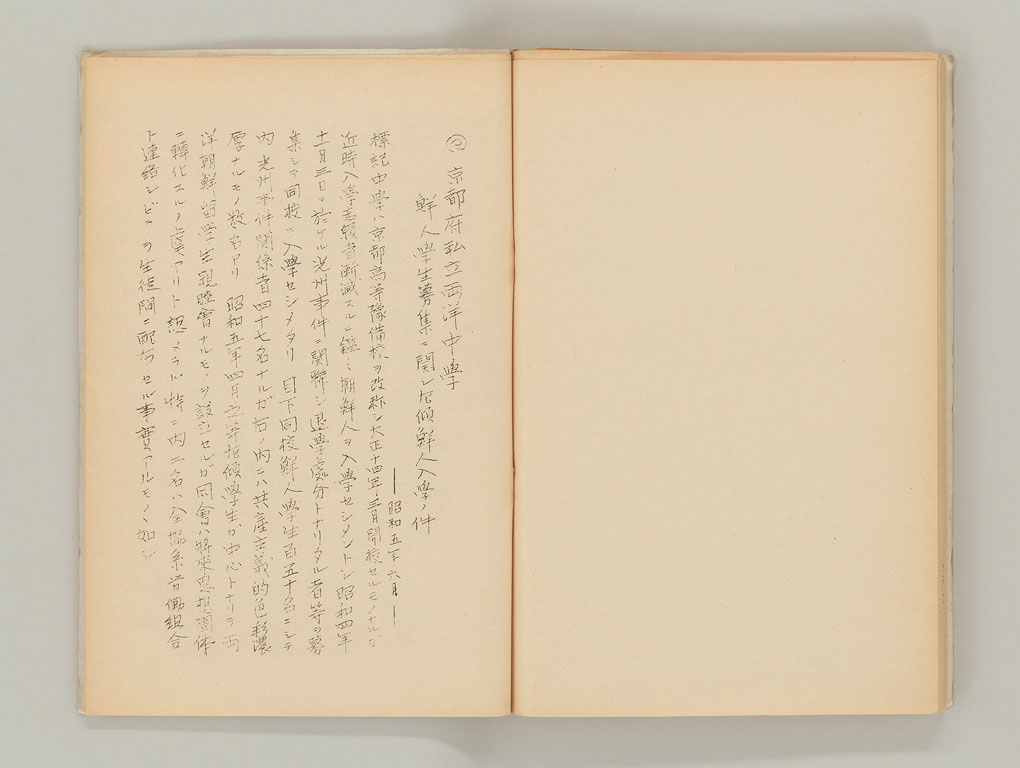 ◎ 京都府私立両洋中學
鮮人學生募集ニ関シ左傾鮮人入學ノ件
―昭和五年六月―
標記中學ハ京都高等豫備校ヲ改称シ大正十四年三月開校セルモノナルガ
近時入學志願者漸減スルニ鑑ミ朝鮮人ヲ入學セシメントシ昭和四年
十一月三日ニ於ケル光州事件ニ関聯シ退學處分トナリタル者等ヲ募
集シテ同校ニ入學セシメタリ 目下同校鮮人學生百五十名ニシテ
内光州事件関係者四十七名ナルガ右ノ内ニハ共産主義的色彩濃
厚ナルモノ数名アリ 昭和五年四月之等左傾學生ガ中心トナリテ両
洋朝鮮留學生親睦會ナルモノヲ設立セルガ同會ハ将来思想團体
ニ轉化スルノ虞アリト認メラル 特ニ内二名ハ全協系労働組合
ト連絡シビラヲ生徒間ニ配布セル事実アルモノヽ如シ